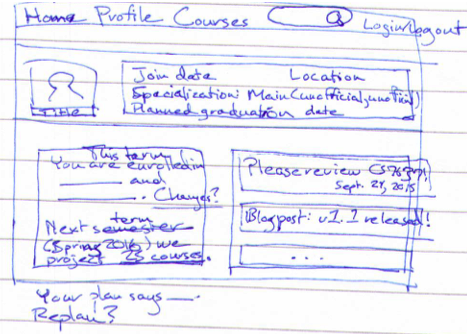 Home Profile Courses
Login/Logout
Join date Location
Specialization: Main (unofficial, unofficial)
Planned graduation date
Title
This term
You are enrolled in
___ and
___. Changes?
Next semester
term
(Spring 2016) we
project 23 courses.
Please review CS7637!
Sept. 24, 2015
Blog post: v1.1 released!
...
Your plan says ___.
Replan?